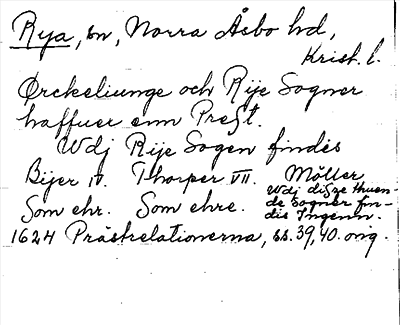 Rya, sn, Norra Åsbo hd,
Krist. l.
Ørckeliunge och Rije Sogner
haffuer enn Prest.
Wdj Rije Sogen findes
Bijer IV. Thorper VII. Möller
Som ehr. Som ehre. Wdj disse thuen-
de Sogner fin-
dis Ingenn.
1624 Prästrelationerna, ss. 39, 40. orig.